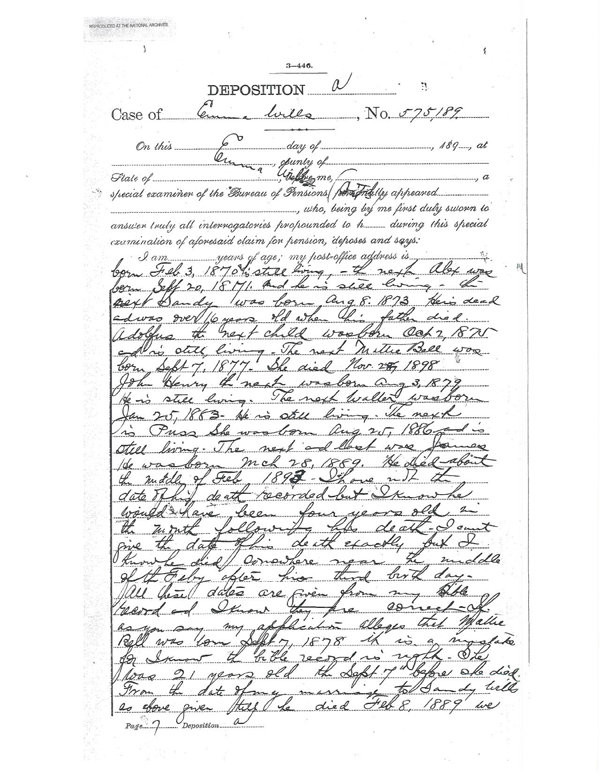 REPRODUCED AT THE NATIONAL ARCHIVES
3—446.
DEPOSITION a B
Case of Emma Wills, No. 575,189
On this day of , 189 , at
Emma, county of
State of , me, , a
special examiner of the Bureau of Pensions, personally appeared
, who, being by me first duly sworn to
answer truly all interrogatories propounded to h during this special
examination of aforesaid claim for pension, deposes and says:
I am years of age; my post-office address is
born Feb 3, 1870 & is still living, - the next Alex was
born Sept 20, 1871. And he is still living - the
next Sandy was born Aug 8. 1873 He is dead
ad was over 16 years old when his father died.
Adolfus the next child was born Oct 2, 1875
ad is still living. - The next Mattie Bell was
born Sept 7, 1877. She died Nov 1898
John Henry the next was born Aug 3, 1879
He is still living. The next Walter was born
Jan 25, 1883 - He is still living. The next
is Puss She was born Aug 25, 1886 ad is
still living. The next ad last was James
He was born Mch 28, 1889. He died about
the middle of Feb 1893 - I have not the
date of his death recorded but I know he
would have been four years old in
the month following his death - I cant
give the date of his death exactly but I
know he died somewhere near the middle
of the Feby after his third birth day -
All these dates are given from my Bible
record ad I know they are correct - If
as you say my application alleges that Mattie
Bell was born Sept 7, 1878 it is a mistake
for I know the bible record is right. She
was 21 years old the Sept 7" before she died.
From the date of my marriage to Sandy Wills
as above given till he died Feb 8, 1889 we
Page 7 Deposition a